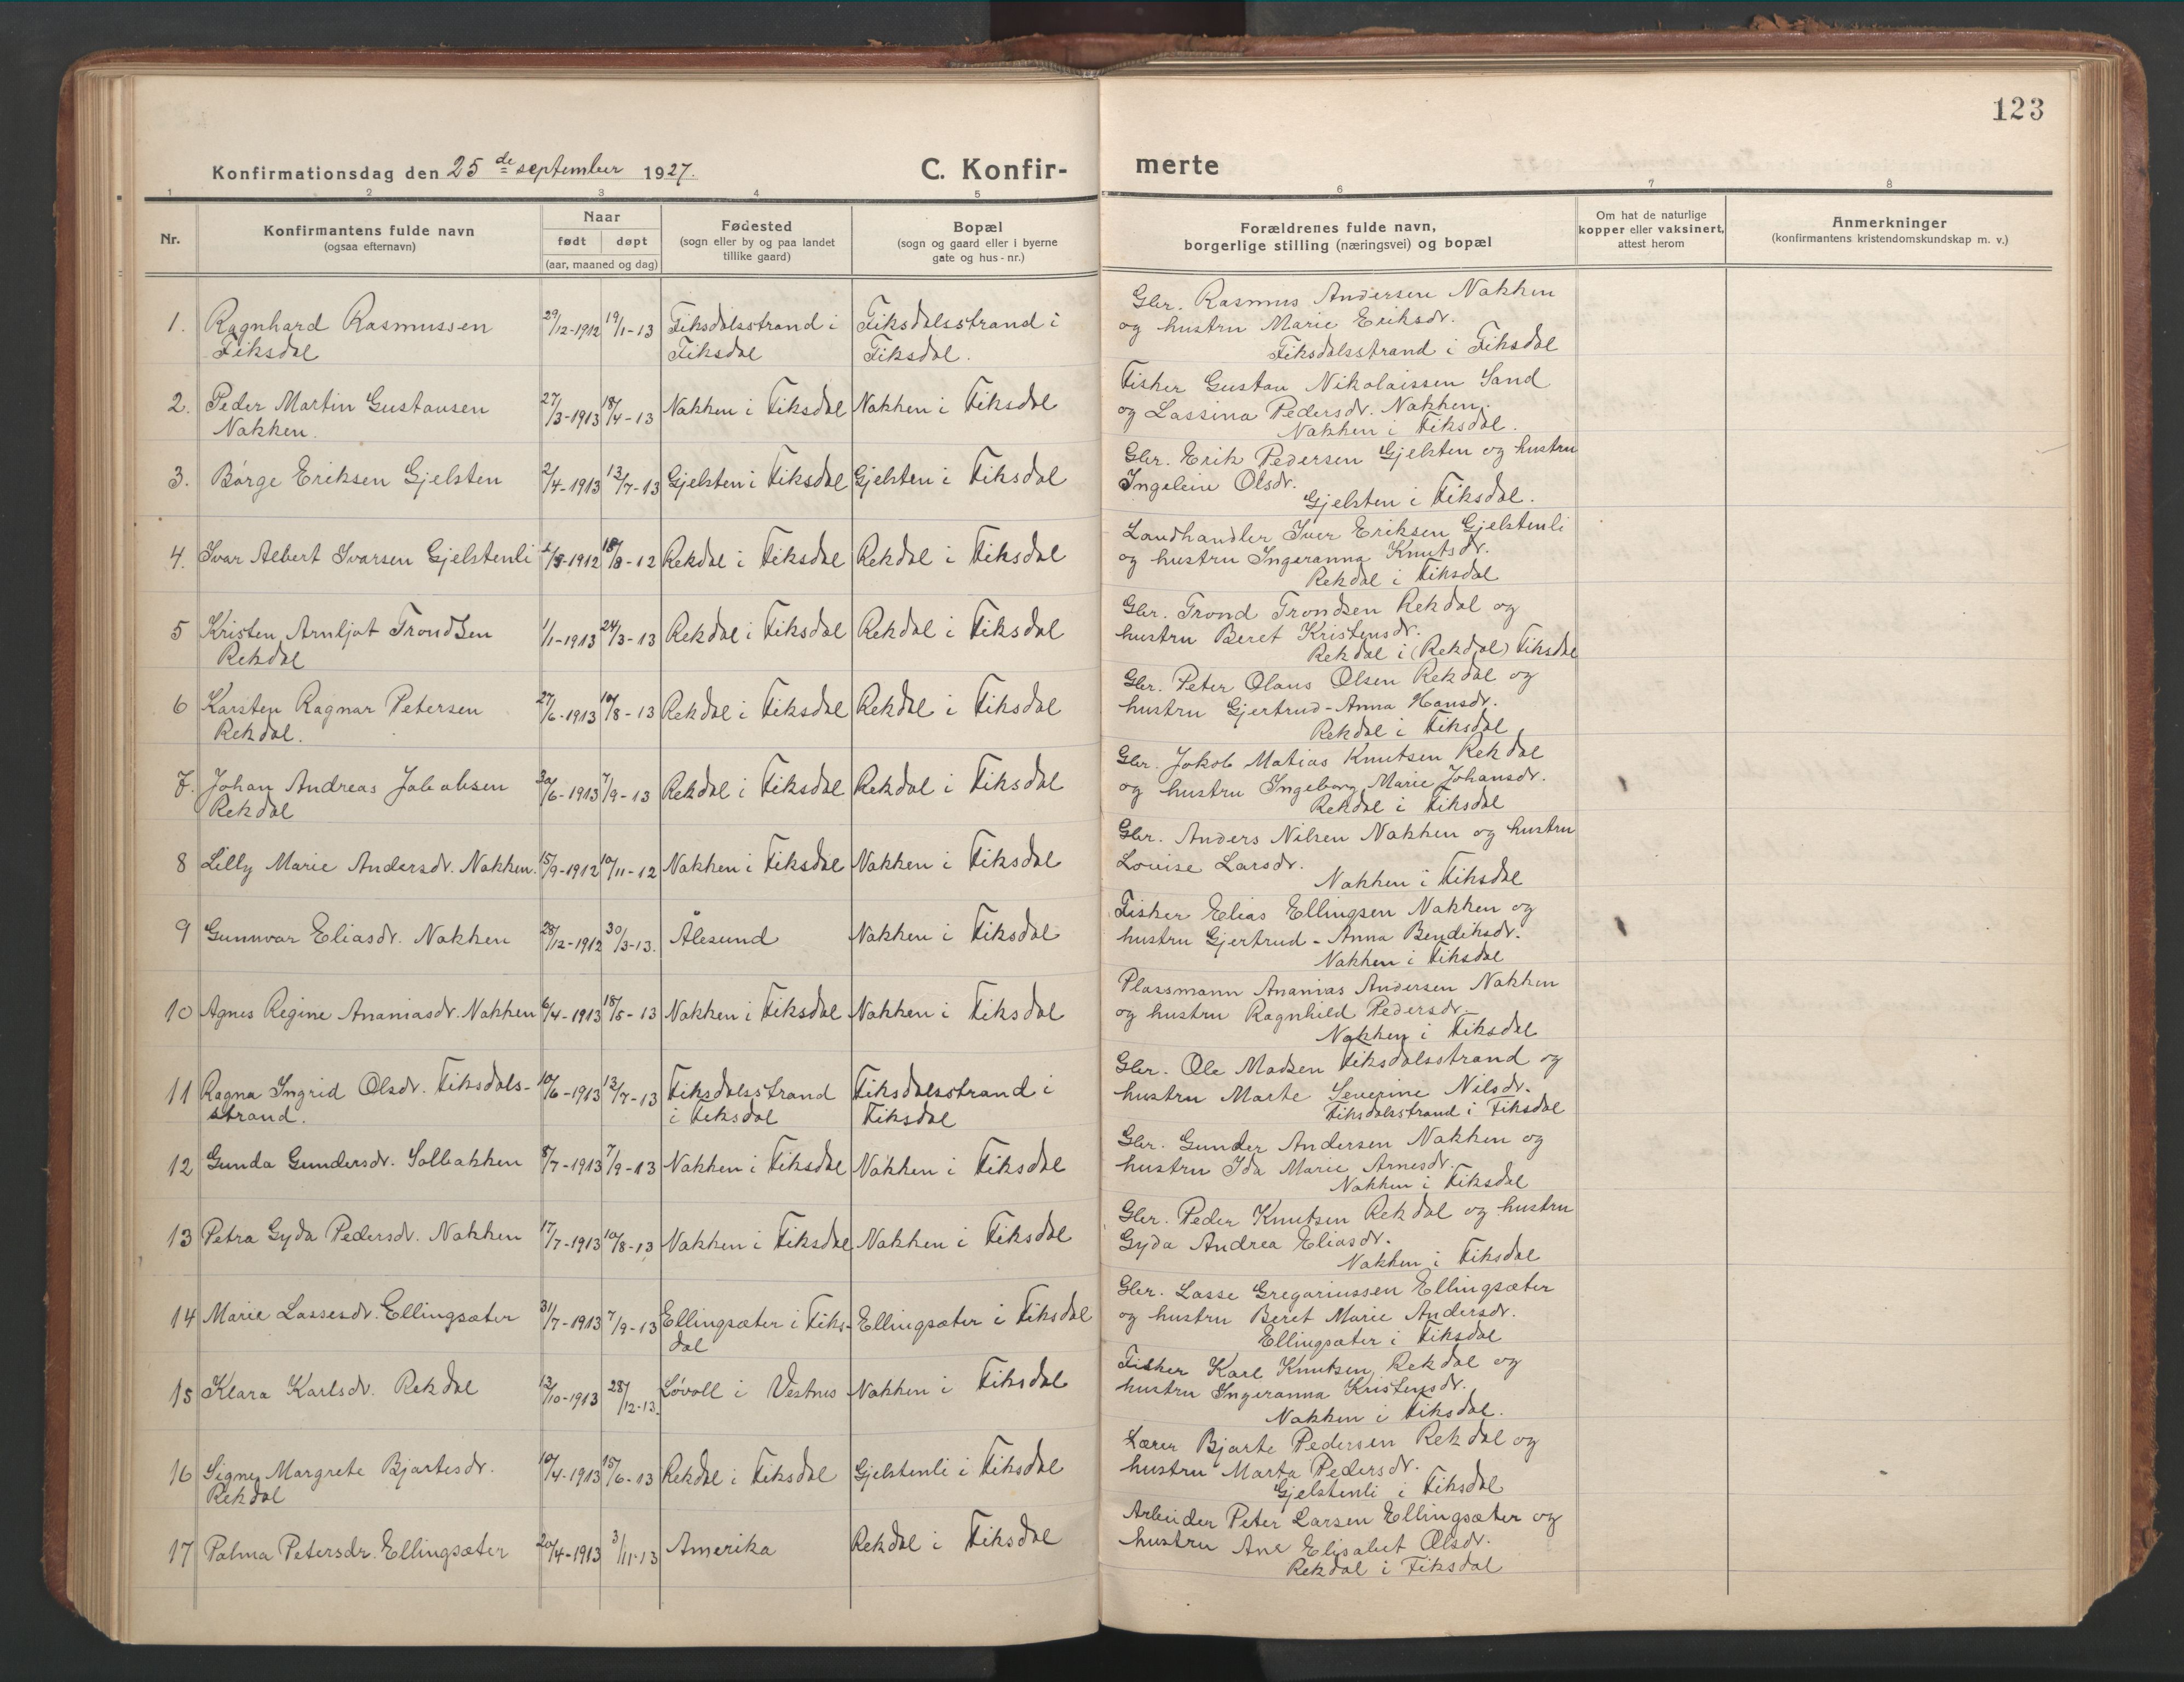 123
Konfirmationsdag den 25 de september 1927.
C. Konfir-
merte
1 2 3 4 5 6 7 8
Nr.
Konfirmantens fulde navn
(ogsaa efternavn)
Naar
født døpt
(aar, maaned og dag)
Fødested
(sogn eller by og paa landet
tillike gaard)
Bopæl
(sogn og gaard eller i byerne
gate og hus-nr.)
Forældrenes fulde navn,
borgerlige stilling (næringsvei) og bopæl
Om hat de naturlige
kopper eller vaksinert,
attest herom
Anmerkninger
(konfirmantens kristendomskundskap m. v.)
1. Ragnhard Rasmussen 29/12-1912 19/1-13 Fiksdalsstrand i Fiksdalsstrand i
Fiksdal Fiksdal Fiksdal.
Gbr. Rasmus Andersen Nakken
og hustru Marie Eriksdr.
Fiksdalsstrand i Fiksdal
2. Peder Martin Gustavsen 27/3-1913 18/4-13 Nakken i Fiksdal Nakken i Fiksdal
Nakken.
Fisker Gustav Nikolaissen Sand
og Lassina Pedersdr. Nakken.
Nakken i Fiksdal.
3. Børge Eriksen Gjelsten 2/4-1913 13/7-13 Gjelsten i Fiksdal Gjelsten i Fiksdal
Gbr. Erik Pedersen Gjelsten og hustru
Ingeleine Olsdr.
Gjelsten i Fiksdal.
4. Ivar Albert Ivarsen Gjelstenli /8-1912 18/8-12 Rekdal i Fiksdal Rekdal i Fiksdal
Landhandler Iver Eriksen Gjelstenli
og hustru Ingeranna Knutsdr.
Rekdal i Fiksdal
5 Kristen Arnljot Trondsen 1/1-1913 24/3-13 Rekdal i Fiksdal Rekdal i Fiksdal
Rekdal
Gbr. Trond Trondsen Rekdal og
hustru Beret Kristensdr.
Rekdal i (Rekdal) Fiksdal
6 Karsten Ragnar Petersen 27/6-1913 10/8-13 Rekdal i Fiksdal Rekdal i Fiksdal
Rekdal.
Gbr. Peter Olaus Olsen Rekdal og
hustru Gjertrud-Anna Hansdr.
Rekdal i Fiksdal
7. Johan Andreas Jakobsen 30/6-1913 7/9-13 Rekdal i Fiksdal Rekdal i Fiksdal
Rekdal
Gbr. Jakob Matias Knutsen Rekdal
og hustru Ingeborg Marie Johansdr.
Rekdal i Fiksdal
8 Lilly Marie Andersdr. Nakken. 15/9-1912 10/11-12 Nakken i Fiksdal Nakken i Fiksdal
Gbr. Anders Nilsen Nakken og hustru
Louise Larsdr.
Nakken i Fiksdal
9 Gunnvor Eliasdr. Nakken 28/12-1912 30/3-13. Ålesund Nakken i Fiksdal
Fisker Elias Ellingsen Nakken og
hustru Gjertrud-Anna Bendiksdr.
Nakken i Fiksdal
10 Agnes Regine Ananiasdr. Nakken 6/4-1913 18/5-13 Nakken i Fiksdal Nakken i Fiksdal
Plassmann Ananias Andersen Nakken
og hustru Ragnhild Pedersdr.
Nakken i Fiksdal
11 Ragna Ingrid Olsdr. Fiksdals- 10/6-1913 13/7-13 Fiksdalsstrand Fiksdalsstrand i
strand. i Fiksdal Fiksdal
Gbr. Ole Madsen Fiksdalsstrand og
hustru Marte Severine Nilsdr.
Fiksdalsstrand i Fiksdal
12 Gunda Gundersdr. Solbakken 8/7-1913 7/9-13 Nakken i Fiksdal Nakken i Fiksdal
Gbr. Gunder Andersen Nakken og
hustru Ida Marie Arnesdr.
Nakken i Fiksdal
13 Petra Gyda Pedersdr. Nakken 17/7-1913 10/8-13 Nakken i Fiksdal Nakken i Fiksdal
Gbr. Peder Knutsen Rekdal og hustru
Gyda Andrea Eliasdr.
Nakken i Fiksdal
14 Marie Lassesdr. Ellingsæter 31/7-1913 7/9-13 Ellingsæter i Fiks- Ellingsæter i Fiksdal
dal
Gbr. Lasse Gregoriussen Ellingsæter
og hustru Beret Marie Andersdr.
Ellingsæter i Fiksdal
15 Klara Karlsdr. Rekdal 12/10-1913 28/12-13. Løvoll i Vestnes Nakken i Fiksdal
Fisker Karl Knutsen Rekdal og
hustru Ingeranna Kristensdr.
Nakken i Fiksdal.
16 Signe Margrete Bjartesdr. 10/4-1913 15/6-13 Rekdal i Fiksdal Gjelstenli i Fiksdal
Rekdal
Lærer Bjarte Pedersen Rekdal og
hustru Marta Pedersdr.
Gjelstenli i Fiksdal
17 Palma Petersdr. Ellingsæter 20/4-1913 3/11-13 Amerika Rekdal i Fiksdal
Arbeider Peter Larsen Ellingsæter og
hustru Ane Elisabet Olsdr.
Rekdal i Fiksdal